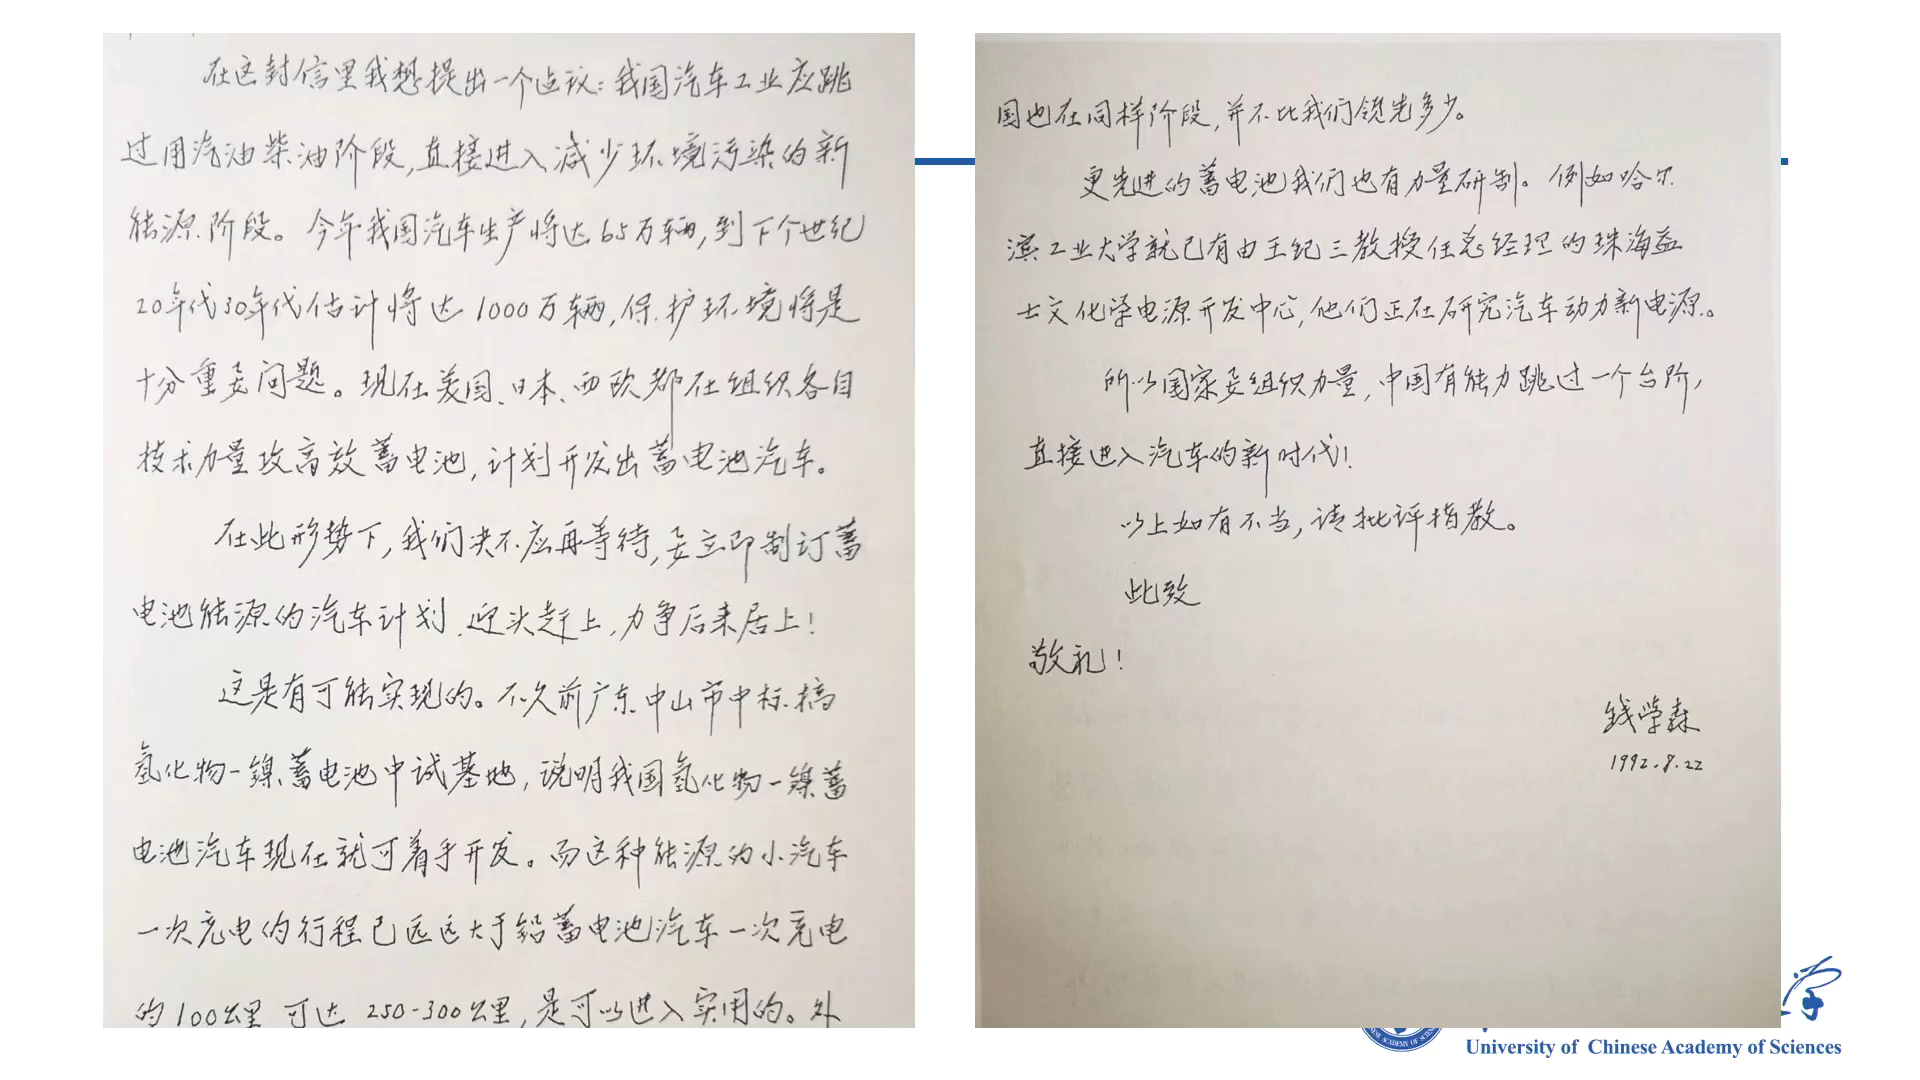 在这封信里我想提出一个建议：我国汽车工业应跳
过用汽油柴油阶段，直接进入减少环境污染的新
能源阶段。今年我国汽车生产将达65万辆，到下个世纪
20年代30年代估计将达1000万辆，保护环境将是
十分重要问题。现在美国、日本、西欧都在组织各自
技术力量攻高效蓄电池，计划开发出蓄电池汽车。
在此形势下，我们决不应再等待，要立即制订蓄
电池能源的汽车计划，迎头赶上，力争后来居上！
这是有可能实现的。不久前广东中山市中标搞
氢化物-镍蓄电池中试基地，说明我国氢化物-镍蓄
电池汽车现在就可着手开发。而这种能源的小汽车
一次充电的行程已远远大于铅蓄电池汽车一次充电
的100公里 可达 250-300公里，是可以进入实用的。外
国也在同样阶段，并不比我们领先多少。
更先进的蓄电池我们也有力量研制。例如哈尔
滨工业大学就已有由王纪三教授任总经理的珠海益
士文化学电源开发中心，他们正在研究汽车动力新电源。
所以国家要组织力量，中国有能力跳过一个台阶，
直接进入汽车的新时代！
以上如有不当，请批评指教。
此致
敬礼！
钱学森
1992.8.22
University of Chinese Academy of Sciences